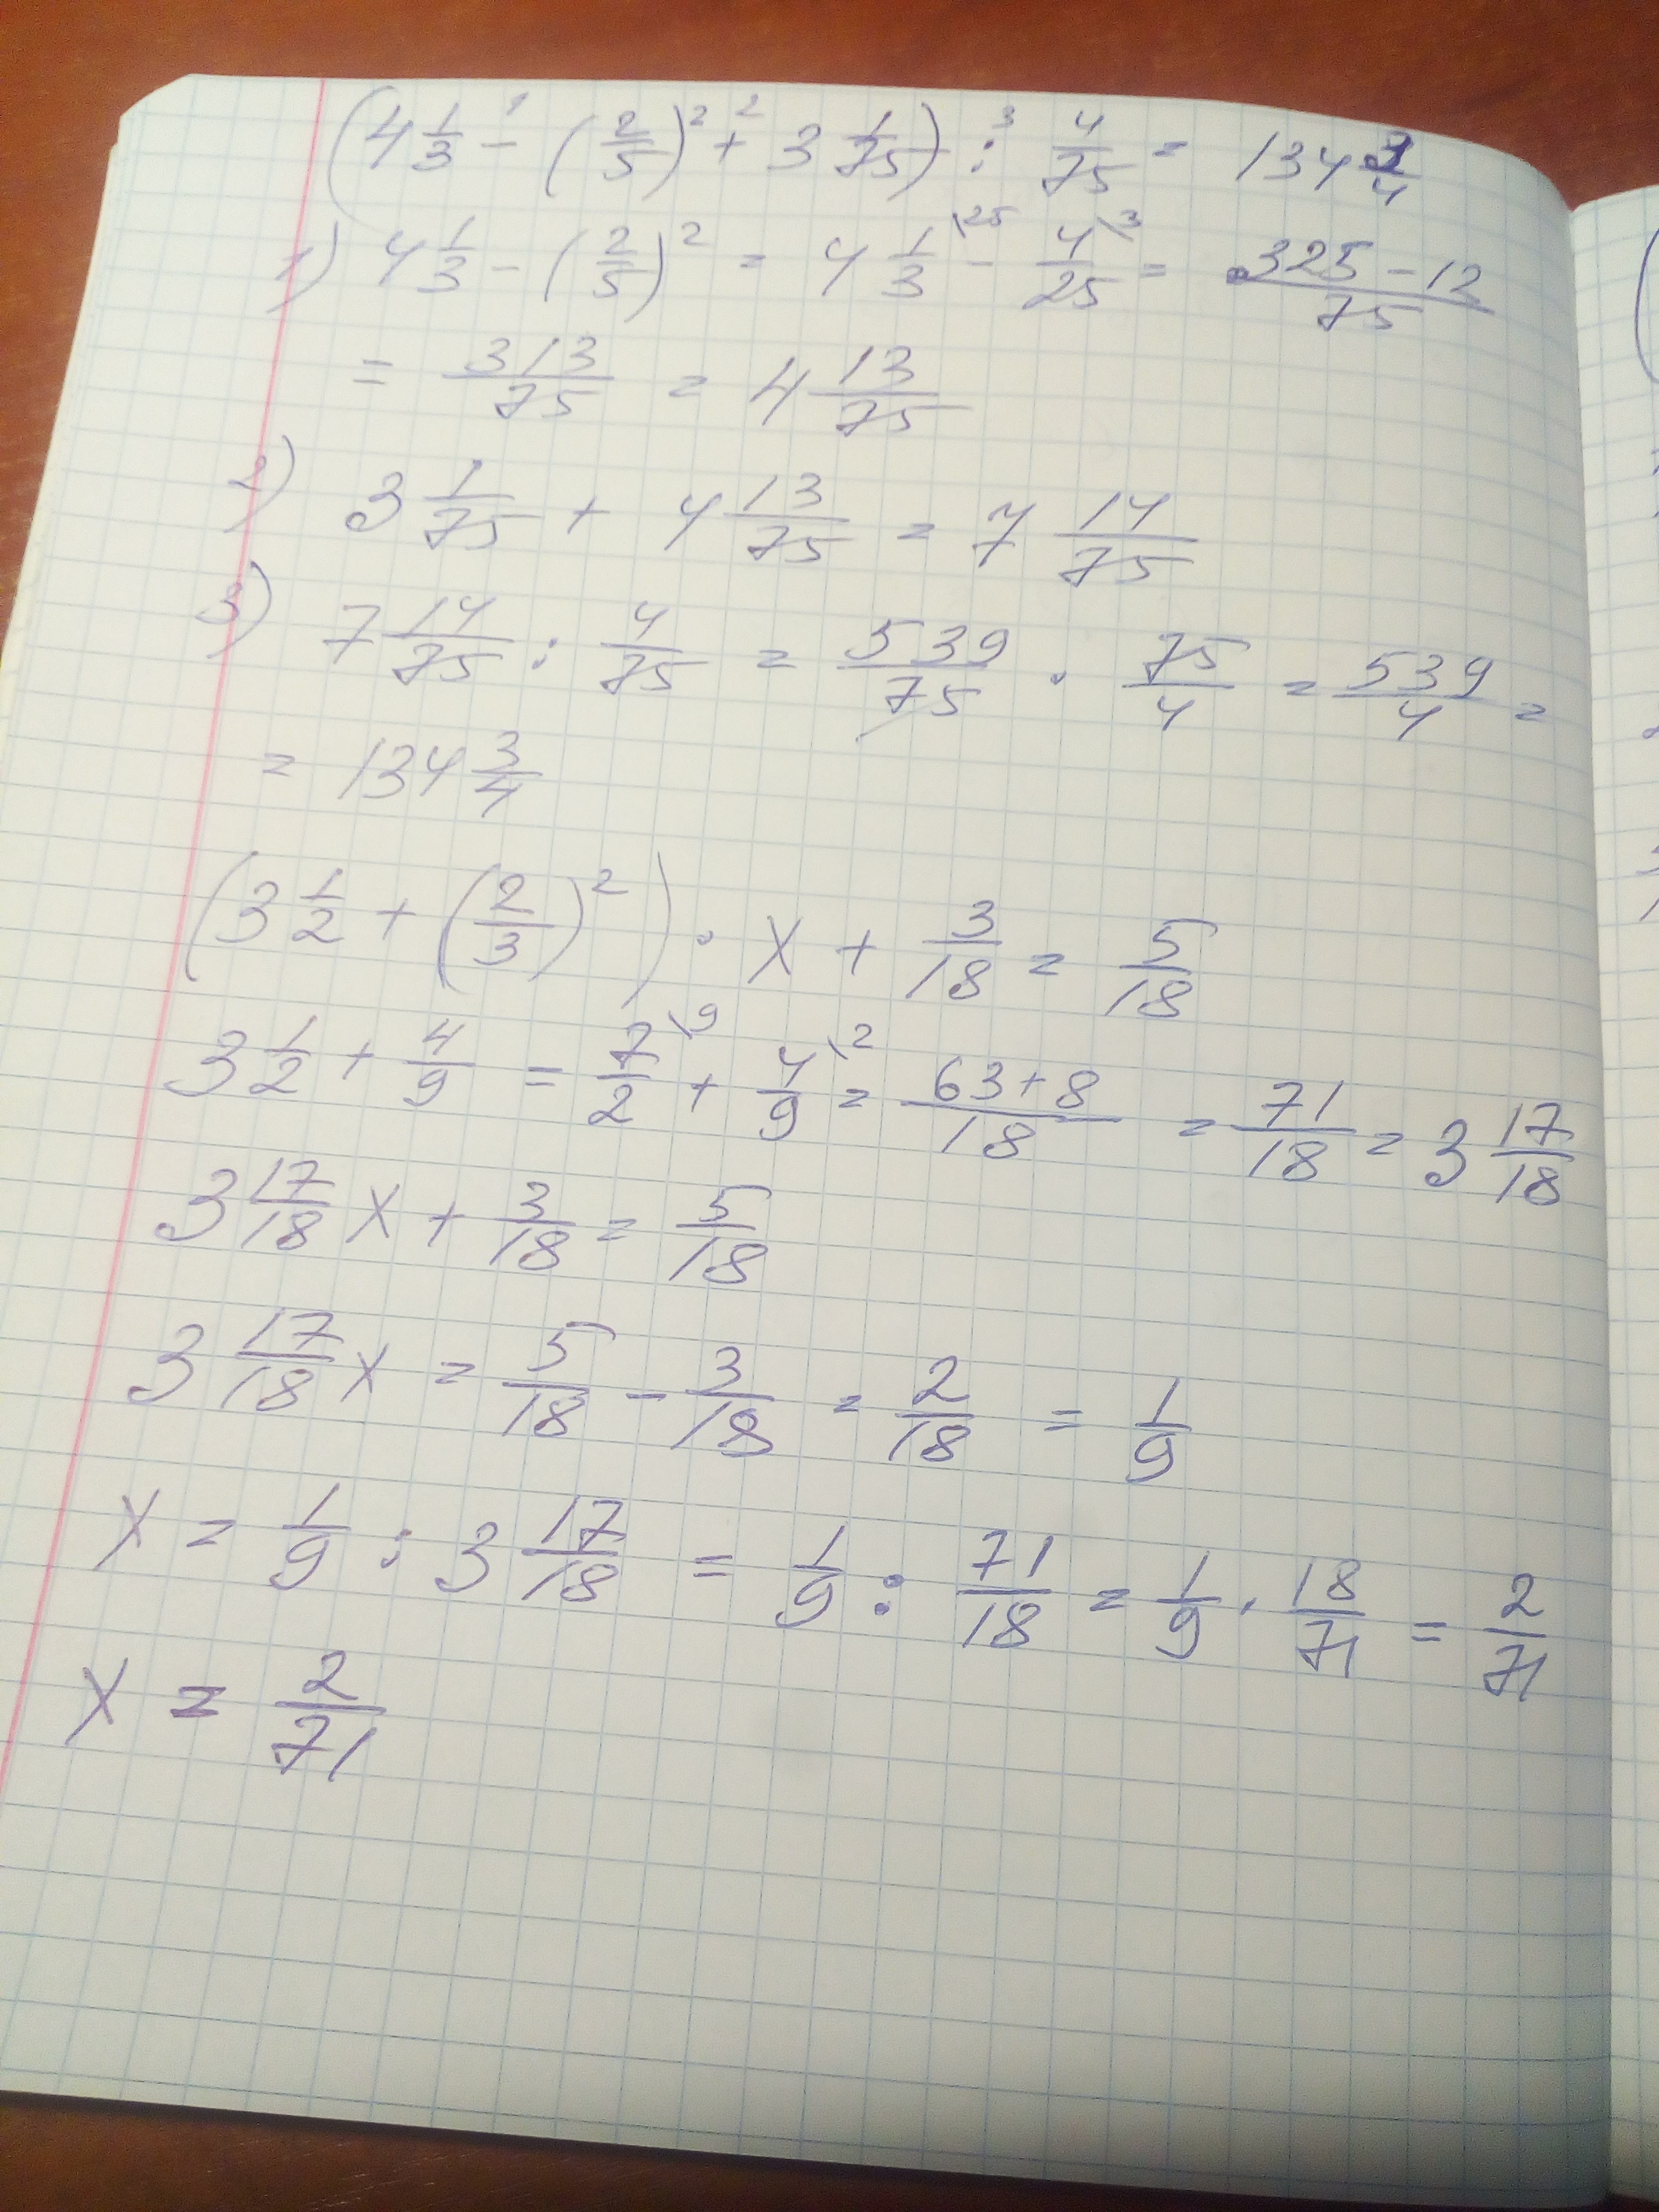 (4 1/3 - (2/5)² + 3 1/75) : 4/75 = 134 3/4
1) 4 1/3 - (2/5)² = 4 1/3 \25 - 4/25 \3 = (325 - 12)/75
= 313/75 = 4 13/75
2) 3 1/75 + 4 13/75 = 7 14/75
3) 7 14/75 : 4/75 = 539/75 · 75/4 = 539/4 =
= 134 3/4
(3 1/2 + (2/3)²) · x + 3/18 = 5/18
3 1/2 + 4/9 = 7/2 \9 + 4/9 \2 = (63 + 8)/18 = 71/18 = 3 17/18
3 17/18 x + 3/18 = 5/18
3 17/18 x = 5/18 - 3/18 = 2/18 = 1/9
x = 1/9 : 3 17/18 = 1/9 : 71/18 = 1/9 · 18/71 = 2/71
x = 2/71